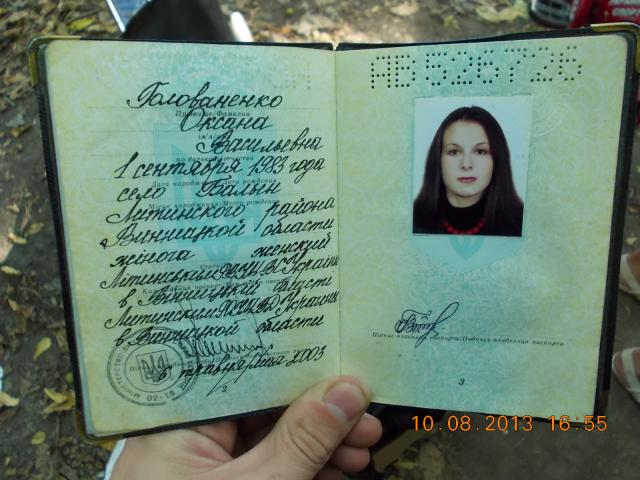 Голованенко
Прізвище/Фамилия
Оксана
ім'я/имя
Васильевна
по батькові/отчество
1 сентября 1983 года
Дата народження/Дата рождения
село Балын
Місце народження/Место рождения
Литинского района
Винницкой области
жіноча женский
Літинським РВ УМВС України
в Вінницькій області
Литинским РО УМВД Украины
в Винницкой области
травня/мая 2003
02-18
2
АВ 526726
Підпис власника паспорта/Подпись владельца паспорта
3
10.08.2013 16:55